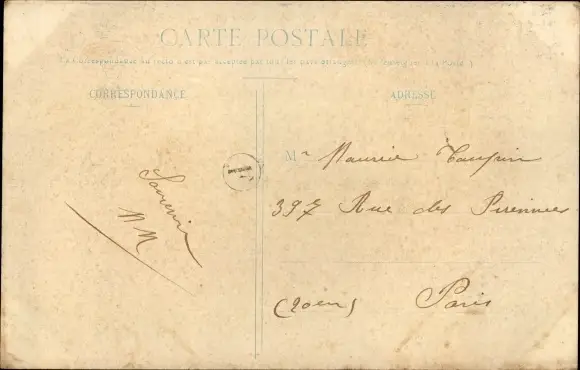 CARTE POSTALE
CORRESPONDANCE
ADRESSE
Souvenir
M M
Mr Maurice Taupin
397 Rue des Pirennees
(20em)
Paris